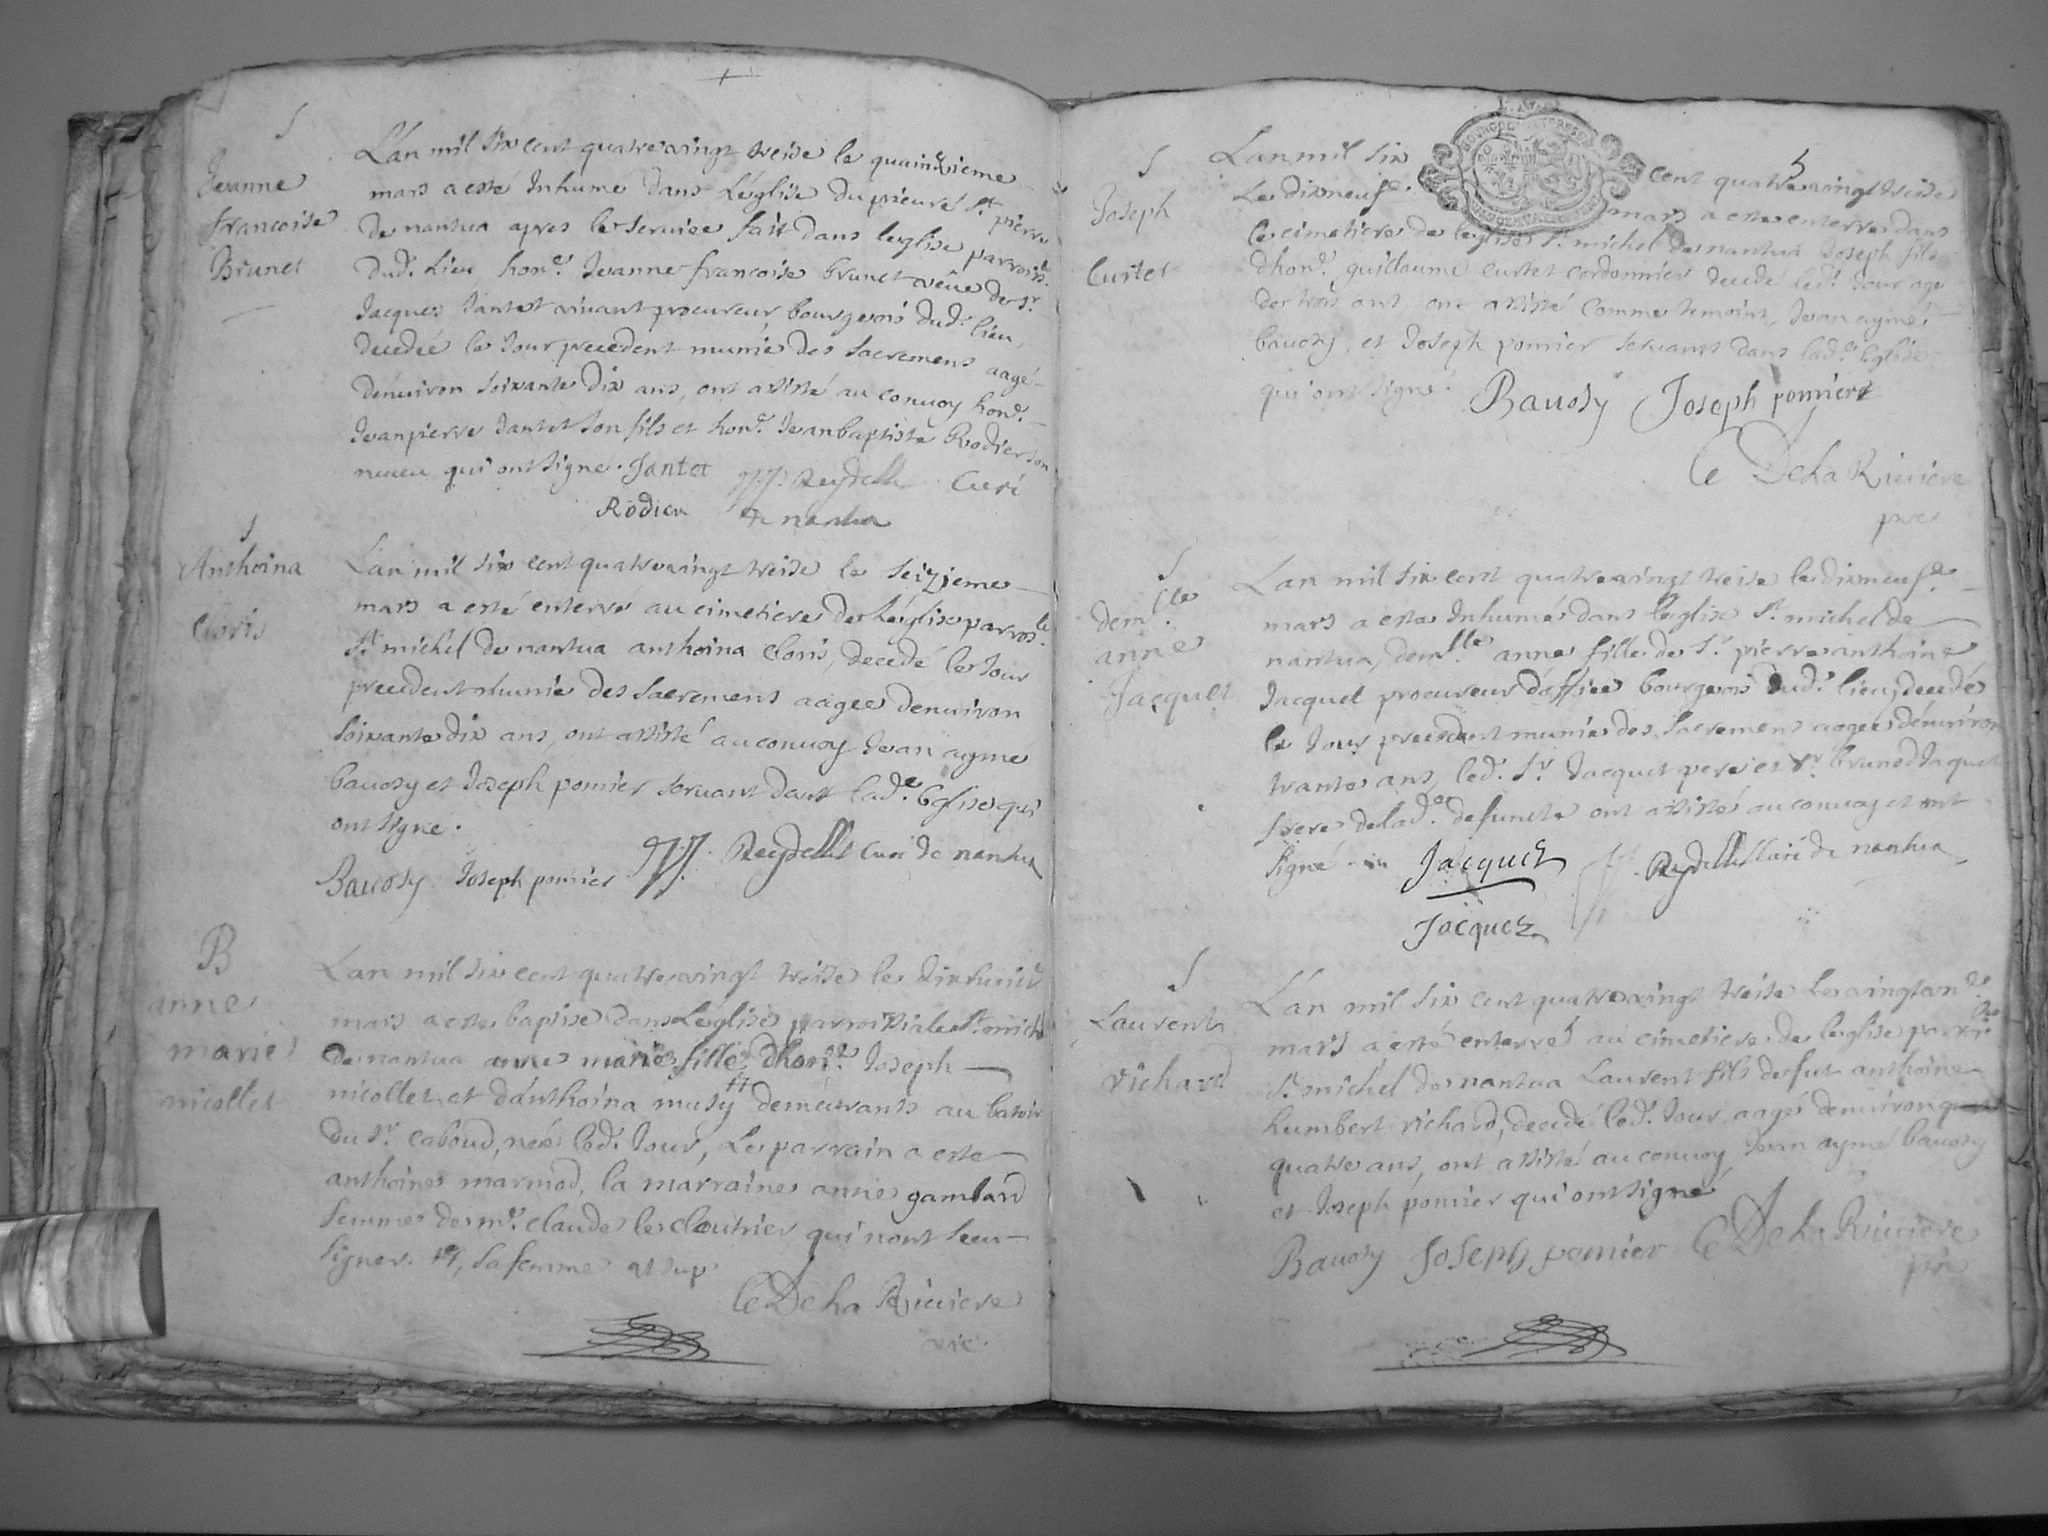 S
Jeanne
francoise
Brunet
L'an mil six cent quatrevingt treise le quainzieme
mars a esté Inhumé dans L'églíse du prieuré St. pierre
de nantua apres le seruice fait dans leglise parroisle.
dud. Lieu hone. Jeanne francoise brunet veûe de sr.
Jacques Jantet viuant procureur bourgeois dud. lieu,
decedée le Jour precedent munie des sacremens aagé
dénuiron soixante dix ans, ont assisté au conuoy hone.
Jeanpierre Jantet son fils et hone. Jeanbaptiste Rodier son
neueu qui ont signé. Jantet Reydellet Curé
Rodier de nantua
S
Anthoina
Cloris
L'an mil six cent quatrevingt treise le seizieme
mars a esté enterré au cimetiere de Léglise parrosle.
St. michel de nantua anthoina Cloris, decédé le Jour
precedent munie des sacremens aagee denuiron
soixante dix ans, ont assisté au conuoy Jean ayme
bauosy et Joseph pomier seruant dans lade. Eglise qui
ont signé.
Bauosy Joseph pomier Reydellet Curé de nantua
B
anne
marie
nicollet
L'an mil six cent quatrevingt treise le dixhuict
mars a este baptise dans Léglise parroissiale St. michel
de nantua anne marie fille dhone. Joseph
nicollet et d'anthoina musy demeurants au batoir
du sr. caboud, neé led. Jour, Le parrain a este
anthoine marmod, la marraine anne gambard
femme de mr. claude le cloutrier qui n'ont sceu
signer. sa femme
C De la Riuiere
S
Joseph
Curtet
5
L'an mil six cent quatrevingt treise
Le dixneufe. mars a esté enterre dans
le cimetiere de leglise St. michel de nantua Joseph fils
dhone. guillaume curtet cordonnier decedé led. Jour age
de trois ans, ont assisté comme temoins, Jean aymé
bauosy, et Joseph pomier seruant dans lade. Eglise
qui ont signé. Bauosy Joseph pomier
C De la Riuiere
pre
S
demlle.
anne
Jacquet
L'an mil six cent quatrevingt treise le dixneufe.
mars a este Inhumé dans leglise St. michel de
nantua, demlle. anne fille de Sr. pierre anthoine
Jacquet procureur d'office bourgeois dud. lieu, decedé
le Jour precedent munie des sacremens aagee dénuiron
trante ans, led. Sr. Jacquet pere et Sr. bruno Jaquet
frere de lade. defuncte ont assisté au conuoy et ont
signé Jacquet Reydellet Curé de nantua
Jacquet
S
Laurent
richard
L'an mil six cent quatrevingt treise Le vingt un de
mars a esté enterré au cimetiere de leglise parroisle
St. michel de nantua Laurent fils de fut anthoine
humbert richard, decedé led. Jour, aagé denuiron
quatre ans, ont assisté au conuoy Jean aymé bauosy
et Joseph pomier qui ont signé
Bauosy Joseph pomier C De la Riuiere
pre